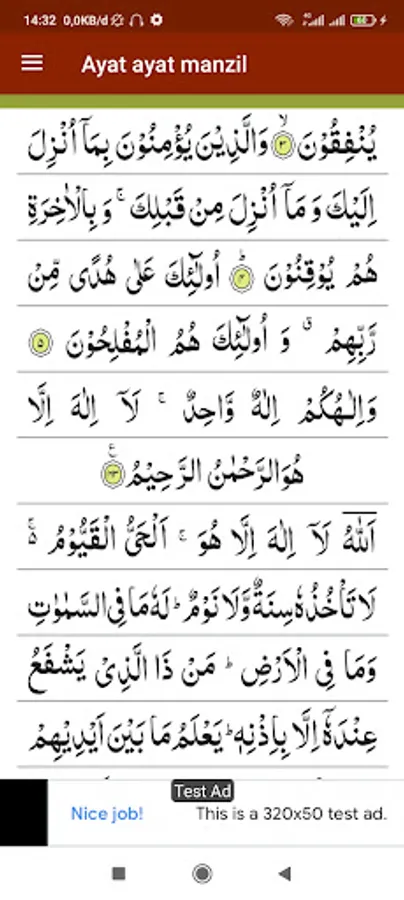 14:32 0,0KB/d
Ayat ayat manzil
يُنْفِقُوْنَ ۙ﴿۳﴾ وَالَّذِيْنَ يُؤْمِنُوْنَ بِمَآ اُنْزِلَ
اِلَيْكَ وَمَآ اُنْزِلَ مِنْ قَبْلِكَ ۚ وَبِالْاٰخِرَةِ
هُمْ يُوْقِنُوْنَ ؕ﴿۴﴾ اُولٰٓئِكَ عَلٰى هُدًى مِّنْ
رَّبِّهِمْ ۗ وَ اُولٰٓئِكَ هُمُ الْمُفْلِحُوْنَ ﴿۵﴾
وَاِلٰهُكُمْ اِلٰهٌ وَّاحِدٌ ۚ لَآ اِلٰهَ اِلَّا
هُوَ الرَّحْمٰنُ الرَّحِيْمُ
اَللّٰهُ لَآ اِلٰهَ اِلَّا هُوَ ۚ اَلْحَيُّ الْقَيُّوْمُ ۚ
لَا تَاْخُذُهٗ سِنَةٌ وَّلَا نَوْمٌ ؕ لَهٗ مَا فِى السَّمٰوٰتِ
وَمَا فِى الْاَرْضِ ؕ مَنْ ذَا الَّذِىْ يَشْفَعُ
عِنْدَهٗٓ اِلَّا بِاِذْنِهٖ ؕ يَعْلَمُ مَا بَيْنَ اَيْدِيْهِمْ
Test Ad
Nice job! This is a 320x50 test ad.